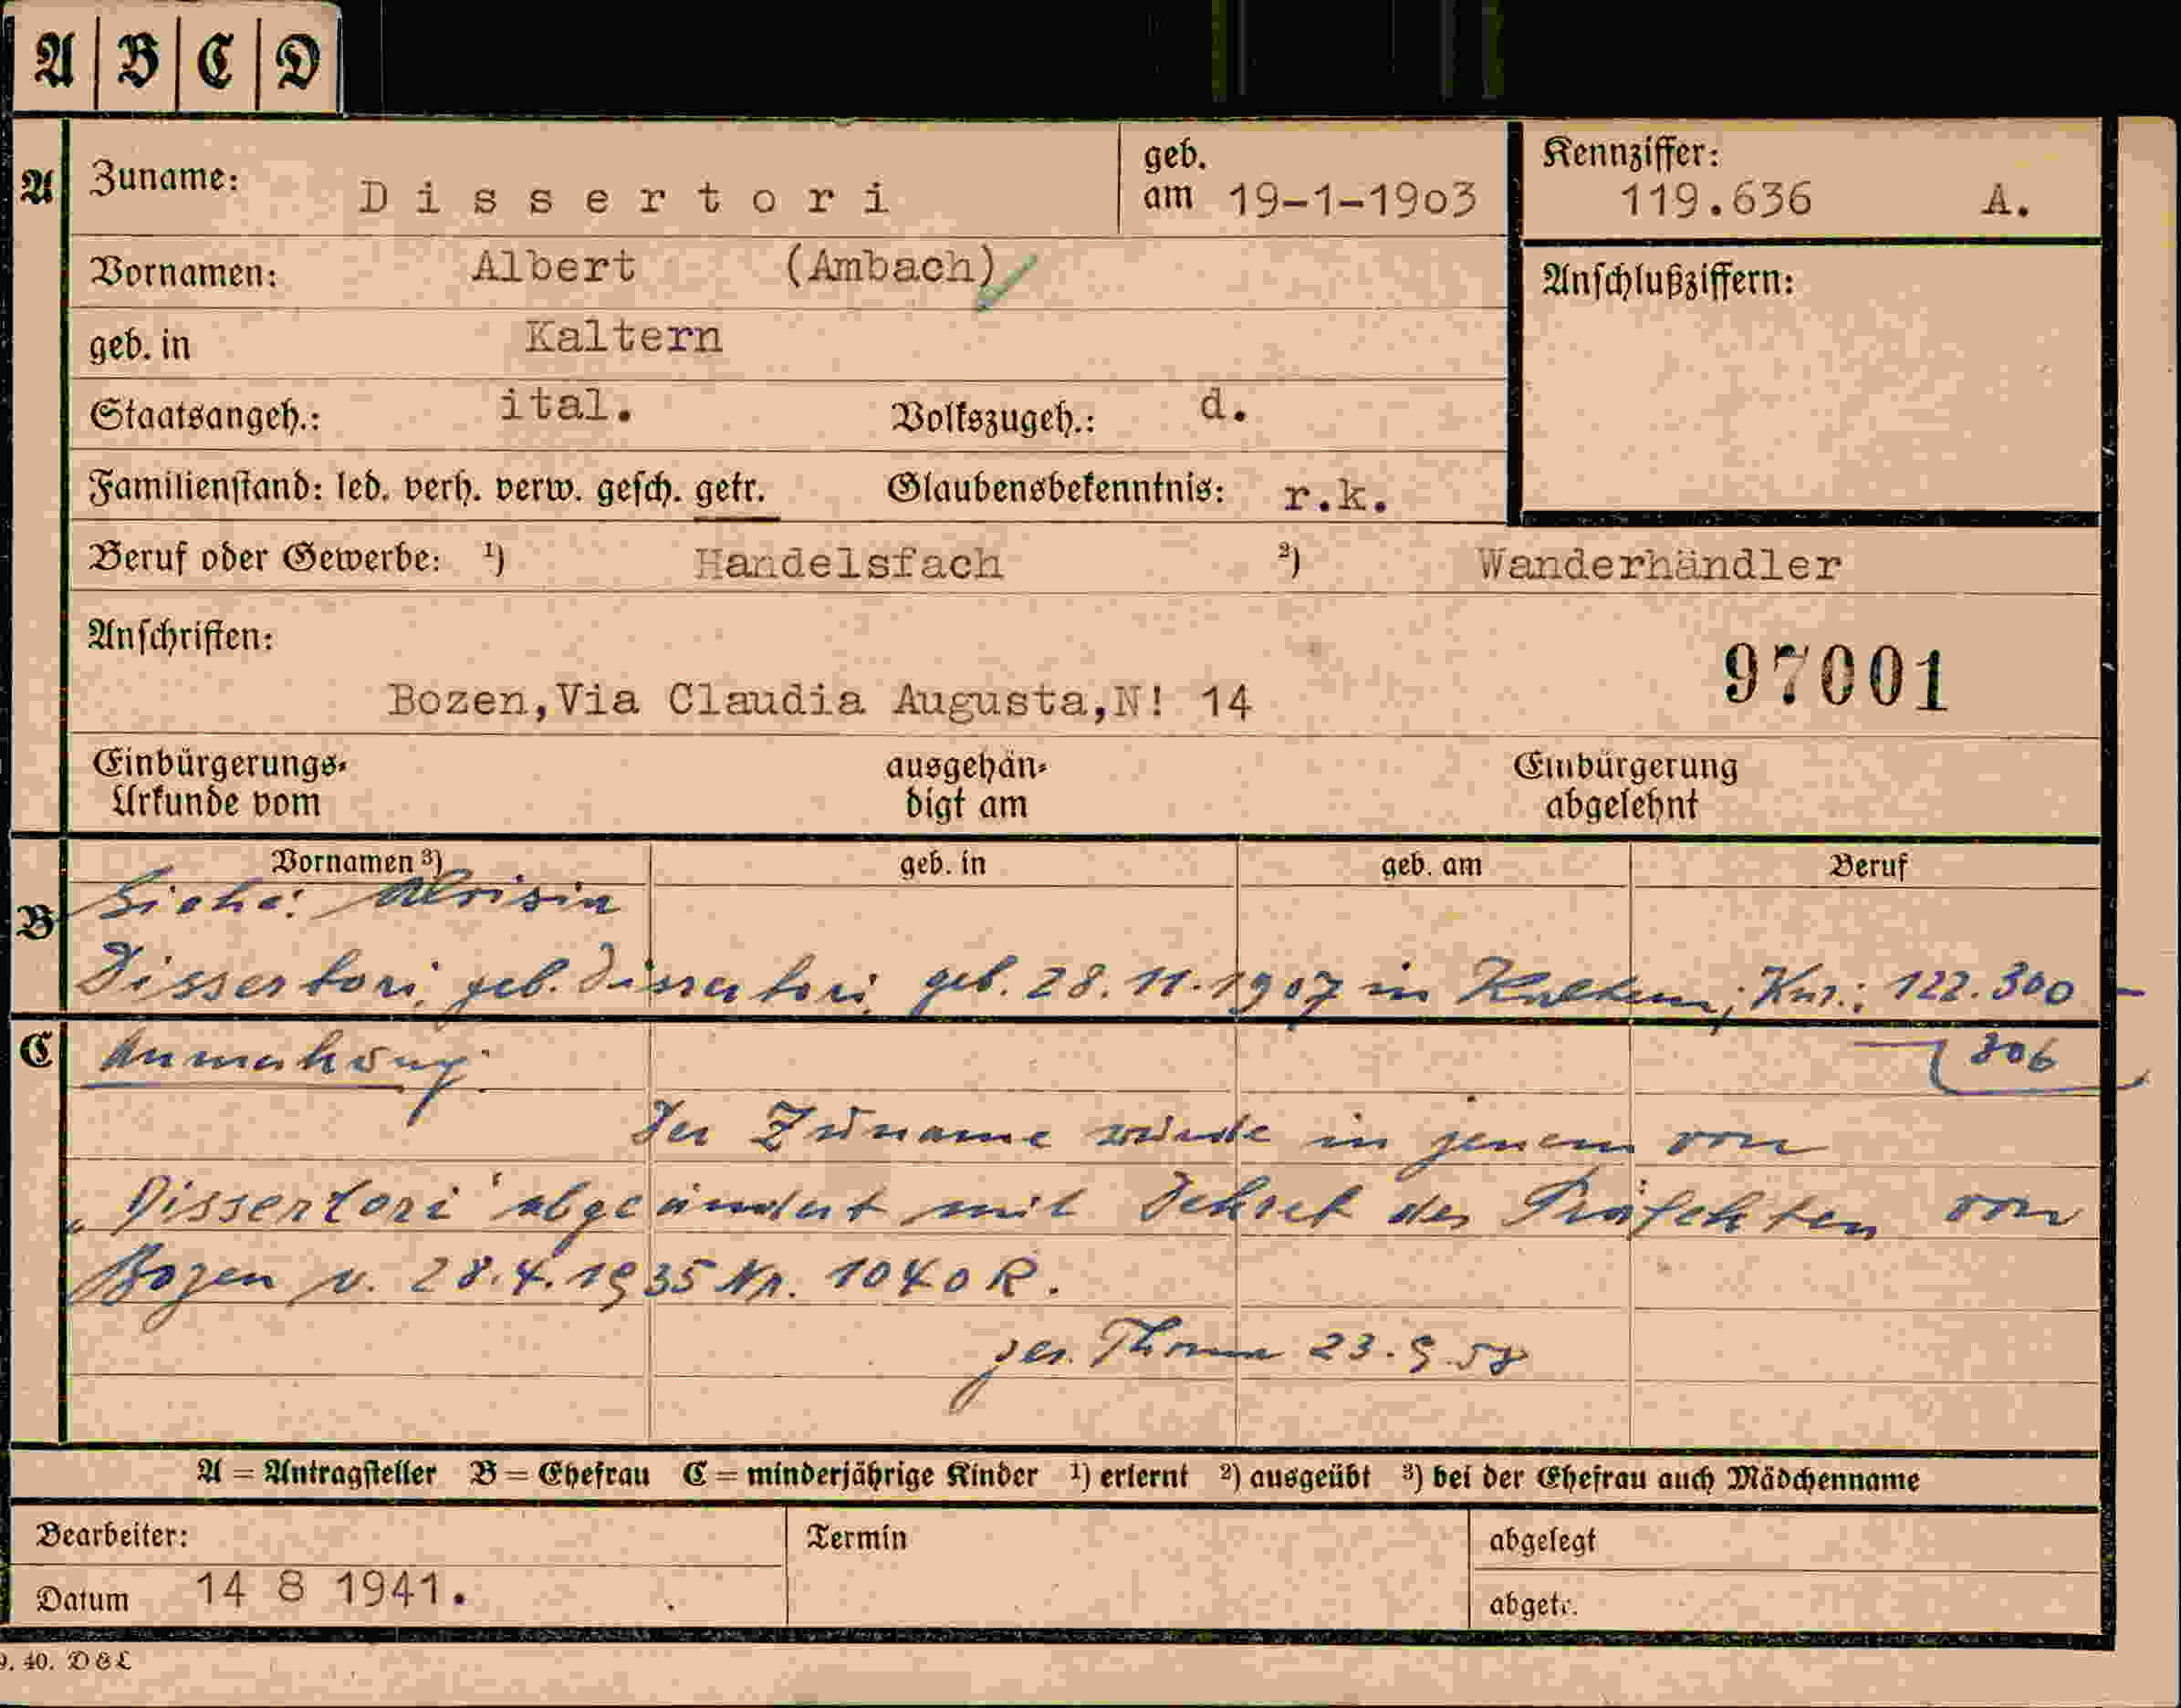 A B C D
A Zuname: Dissertori geb. am 19-1-1903 Kennziffer: 119.636 A.
Vornamen: Albert (Ambach) Anschlußziffern:
geb. in Kaltern
Staatsangeh.: ital. Volkszugeh.: d.
Familienstand: led. verh. verw. gesch. getr. Glaubensbekenntnis: r.k.
Beruf oder Gewerbe: ¹) Handelsfach ²) Wanderhändler
Anschriften:
97001
Bozen,Via Claudia Augusta,N! 14
Einbürgerungs- ausgehän- Einbürgerung
Urkunde vom digt am abgelehnt
Vornamen ³) geb. in geb. am Beruf
B Siehe: Aloisia
Dissertori, geb. Dissertori, geb. 28.11.1907 in Kaltern; Knr.: 122.300 –
C Anmerkung: 306
Der Zuname wurde in jenem von
„Dissertori" abgeändert mit Dekret des Präfekten von
Bozen v. 28.4.1935 Nr. 1040 R.
gez. 23.9.58
A = Antragsteller B = Ehefrau C = minderjährige Kinder ¹) erlernt ²) ausgeübt ³) bei der Ehefrau auch Mädchenname
Bearbeiter: Termin abgelegt
Datum 14 8 1941. abgetr.
9. 40. D&L